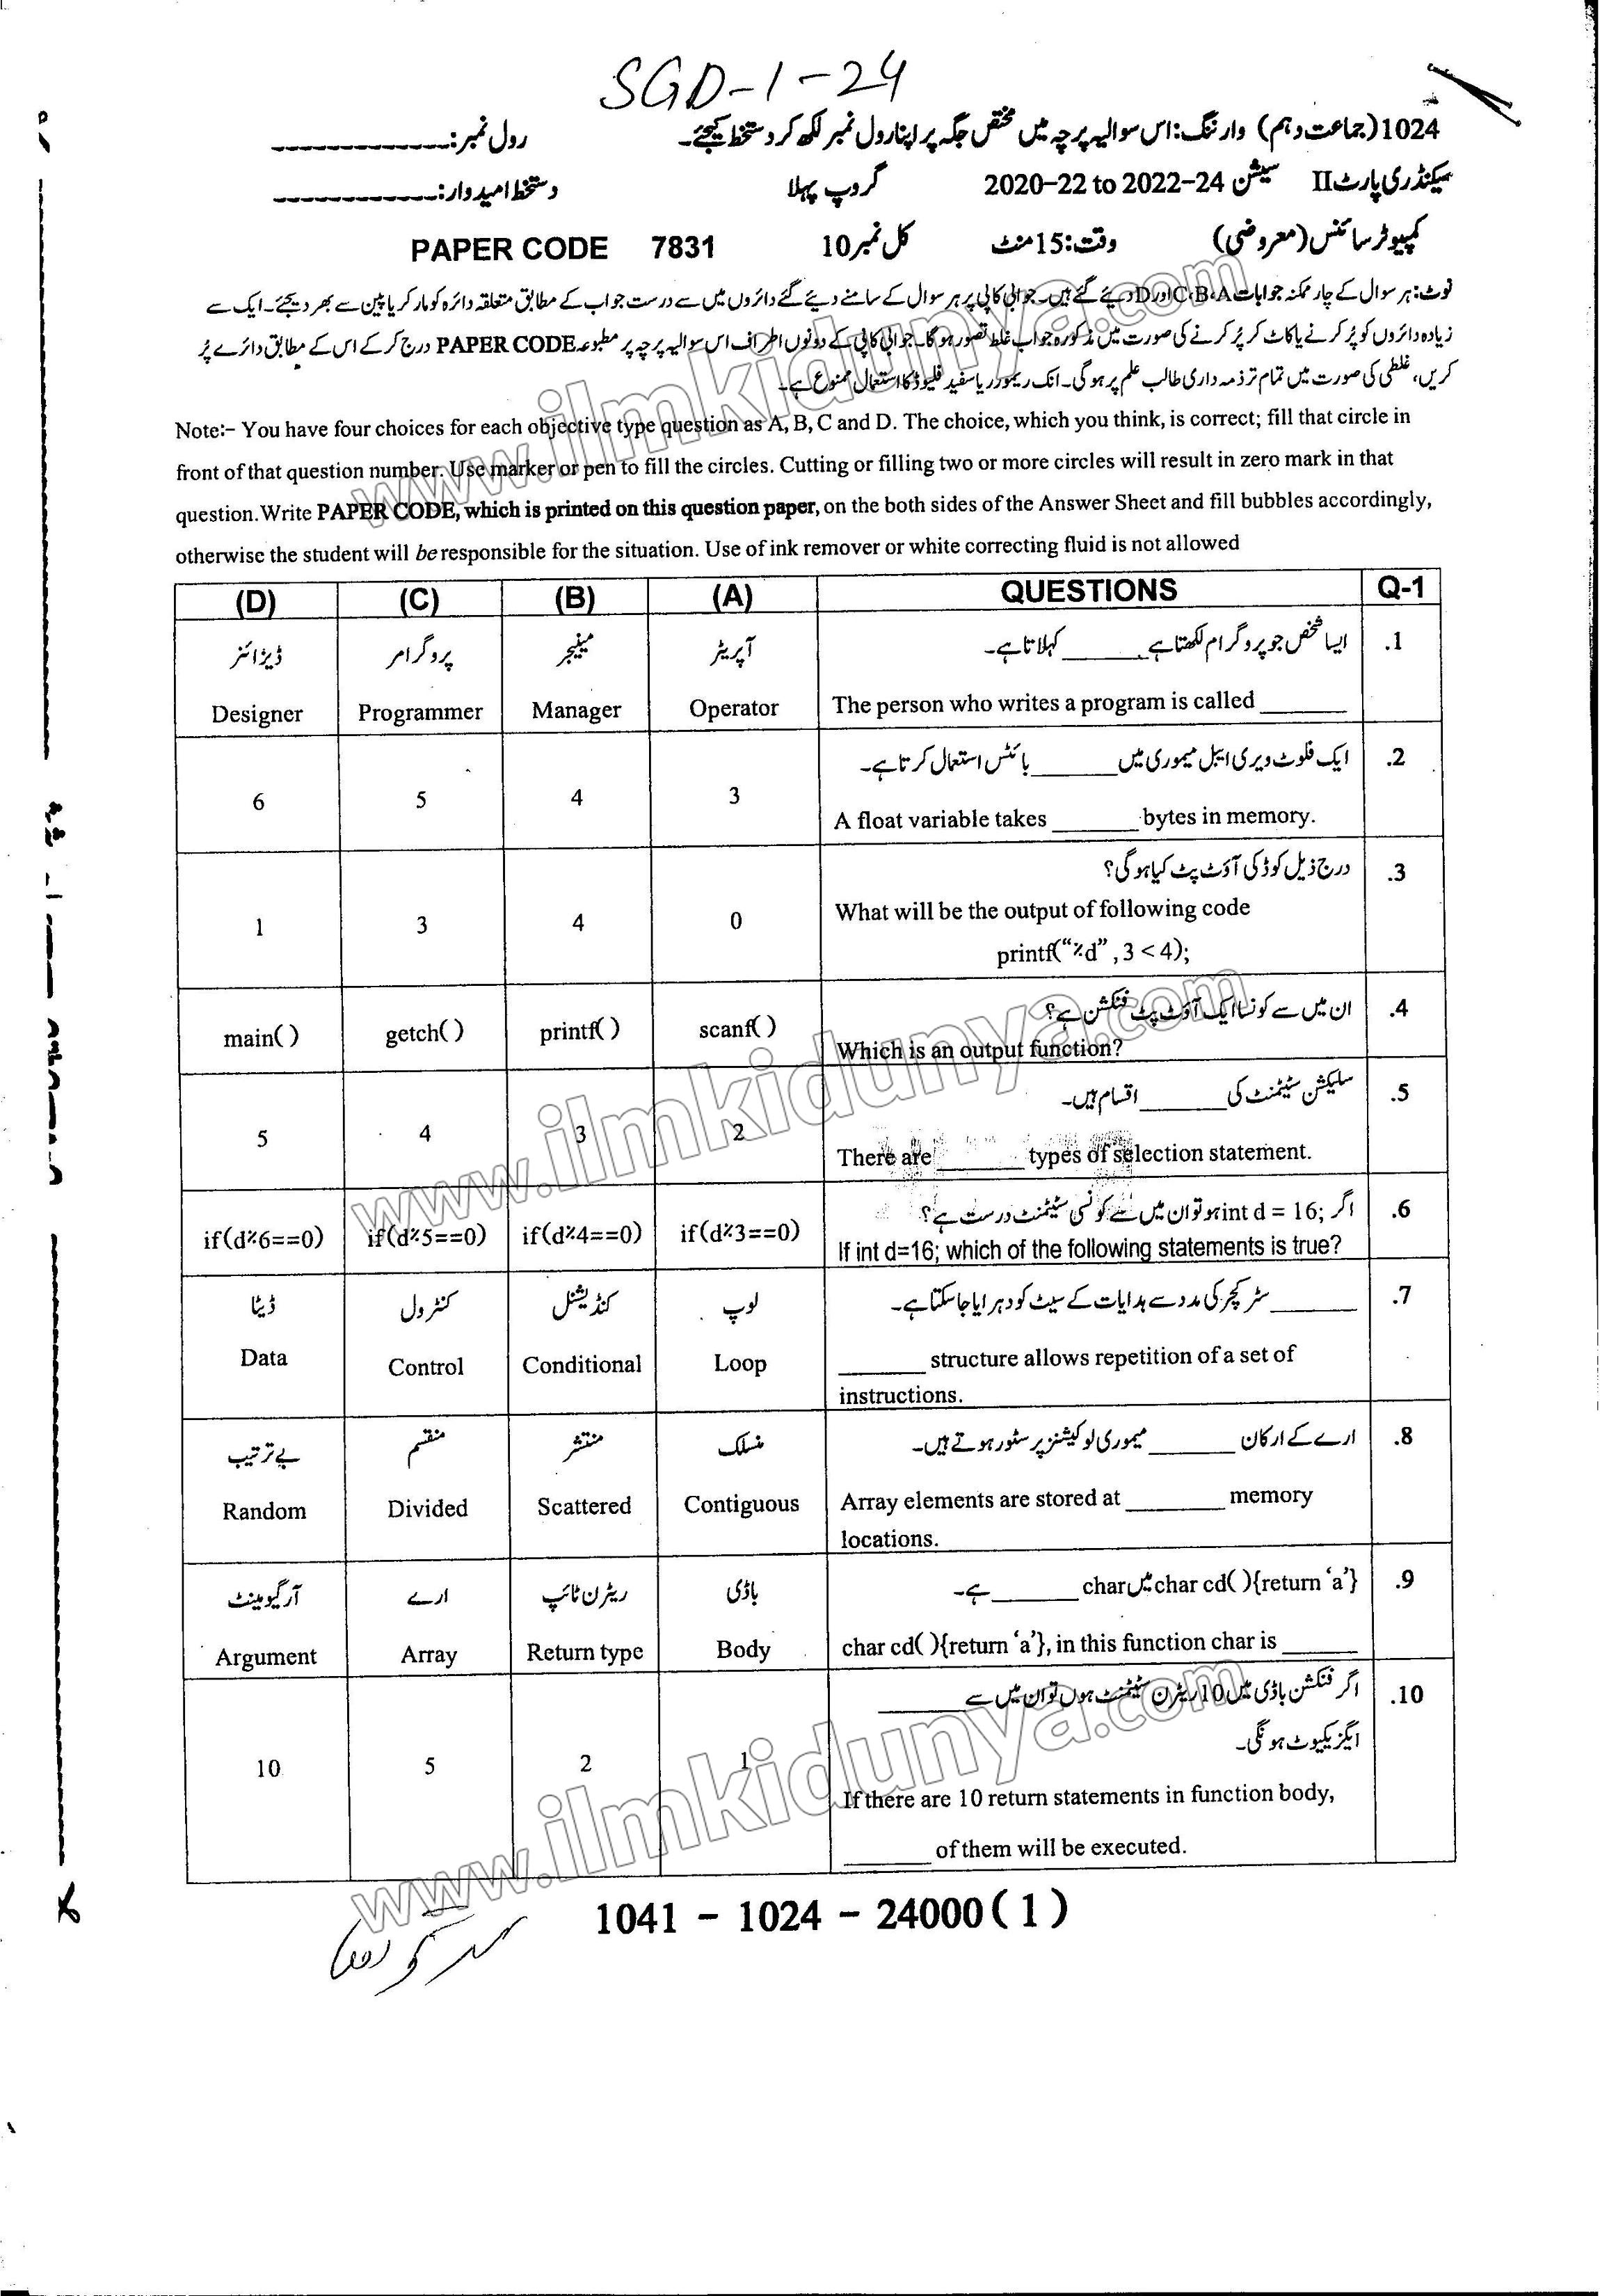 SGD-1-24
1024 (جماعت دہم) وارننگ: اس سوالیہ پرچہ میں مختص جگہ پر اپنا رول نمبر لکھ کر دستخط کیجئے۔ رول نمبر: ____________
سیکنڈری پارٹ II سیشن 2020-22 to 2022-24 گروپ پہلا دستخط امیدوار: ____________
کمپیوٹر سائنس (معروضی) وقت: 15 منٹ کل نمبر 10 PAPER CODE 7831
نوٹ: ہر سوال کے چار ممکنہ جوابات A، B، C اور D دیئے گئے ہیں۔ جوابی کاپی پر ہر سوال کے سامنے دیئے گئے دائروں میں سے درست جواب کے مطابق متعلقہ دائرہ کو مارکر یا پین سے بھر دیجئے۔ ایک سے
زیادہ دائروں کو پُر کرنے یا کاٹ کر پُر کرنے کی صورت میں مذکورہ جواب غلط تصور ہو گا۔ جوابی کاپی کے دونوں اطراف اس سوالیہ پرچہ پر مطبوعہ PAPER CODE درج کر کے اس کے مطابق دائرے پُر
کریں، غلطی کی صورت میں تمام تر ذمہ داری طالب علم پر ہو گی۔ انک ریموور یا سفید فلیوڈ کا استعمال ممنوع ہے۔
Note:- You have four choices for each objective type question as A, B, C and D. The choice, which you think, is correct; fill that circle in
front of that question number. Use marker or pen to fill the circles. Cutting or filling two or more circles will result in zero mark in that
question. Write PAPER CODE, which is printed on this question paper, on the both sides of the Answer Sheet and fill bubbles accordingly,
otherwise the student will be responsible for the situation. Use of ink remover or white correcting fluid is not allowed
(D) (C) (B) (A) QUESTIONS Q-1
ڈیزائنر پروگرامر مینیجر آپریٹر ایسا شخص جو پروگرام لکھتا ہے ______ کہلاتا ہے۔ .1
Designer Programmer Manager Operator The person who writes a program is called ______
ایک فلوٹ ویری ایبل میموری میں ______ بائٹس استعمال کرتا ہے۔ .2
6 5 4 3 A float variable takes ______ bytes in memory.
درج ذیل کوڈ کی آؤٹ پٹ کیا ہو گی؟ .3
1 3 4 0 What will be the output of following code
printf(“%d” , 3 < 4);
ان میں سے کونسا ایک آؤٹ پٹ فنکشن ہے؟ .4
main( ) getch( ) printf( ) scanf( ) Which is an output function?
سلیکشن سٹیٹمنٹ کی ______ اقسام ہیں۔ .5
5 4 3 2 There are ______ types of selection statement.
اگر int d = 16; ہو تو ان میں سے کونسی سٹیٹمنٹ درست ہے؟ .6
if(d%6==0) if(d%5==0) if(d%4==0) if(d%3==0) If int d=16; which of the following statements is true?
ڈیٹا کنٹرول کنڈیشنل لوپ ______ سٹرکچر کی مدد سے ہدایات کے سیٹ کو دہرایا جا سکتا ہے۔ .7
Data Control Conditional Loop ______ structure allows repetition of a set of
instructions.
بے ترتیب منقسم منتشر منسلک ارے کے ارکان ______ میموری لوکیشنز پر سٹور ہوتے ہیں۔ .8
Random Divided Scattered Contiguous Array elements are stored at ______ memory
locations.
آرگیومینٹ ارے ریٹرن ٹائپ باڈی char cd( ){return ‘a’} میں char ______ ہے۔ .9
Argument Array Return type Body char cd( ){return ‘a’}, in this function char is ______
اگر فنکشن باڈی میں 10 ریٹرن سٹیٹمنٹ ہوں تو ان میں سے ______ .10
ایگزیکیوٹ ہونگی۔
10 5 2 1 If there are 10 return statements in function body,
______ of them will be executed.
1041 - 1024 - 24000 ( 1 )
www.ilmkidunya.com
www.ilmkidunya.com
www.ilmkidunya.com